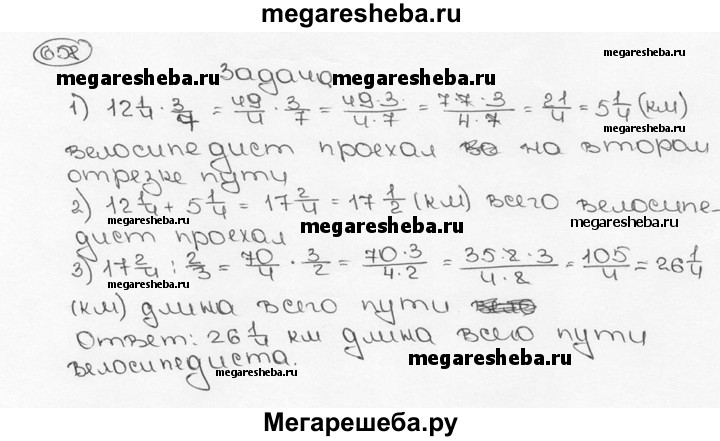 megaresheba.ru
658 megaresheba.ru
megaresheba.ru Задача megaresheba.ru
1) 12 1/4 · 3/7 = 49/4 · 3/7 = 49·3/4·7 = 7·7·3/4·7 = 21/4 = 5 1/4 (км)
велосипедист проехал на втором
отрезке пути megaresheba.ru
2) 12 1/4 + 5 1/4 = 17 2/4 = 17 1/2 (км) всего велосипе-
дист проехал megaresheba.ru megaresheba.ru
3) 17 2/4 : 2/3 = 70/4 · 3/2 = 70·3/4·2 = 35·2·3/4·2 = 105/4 = 26 1/4
(км) длина всего пути
Ответ: 26 1/4 км длина всего пути
велосипедиста. megaresheba.ru
megaresheba.ru
Мегарешеба.ру